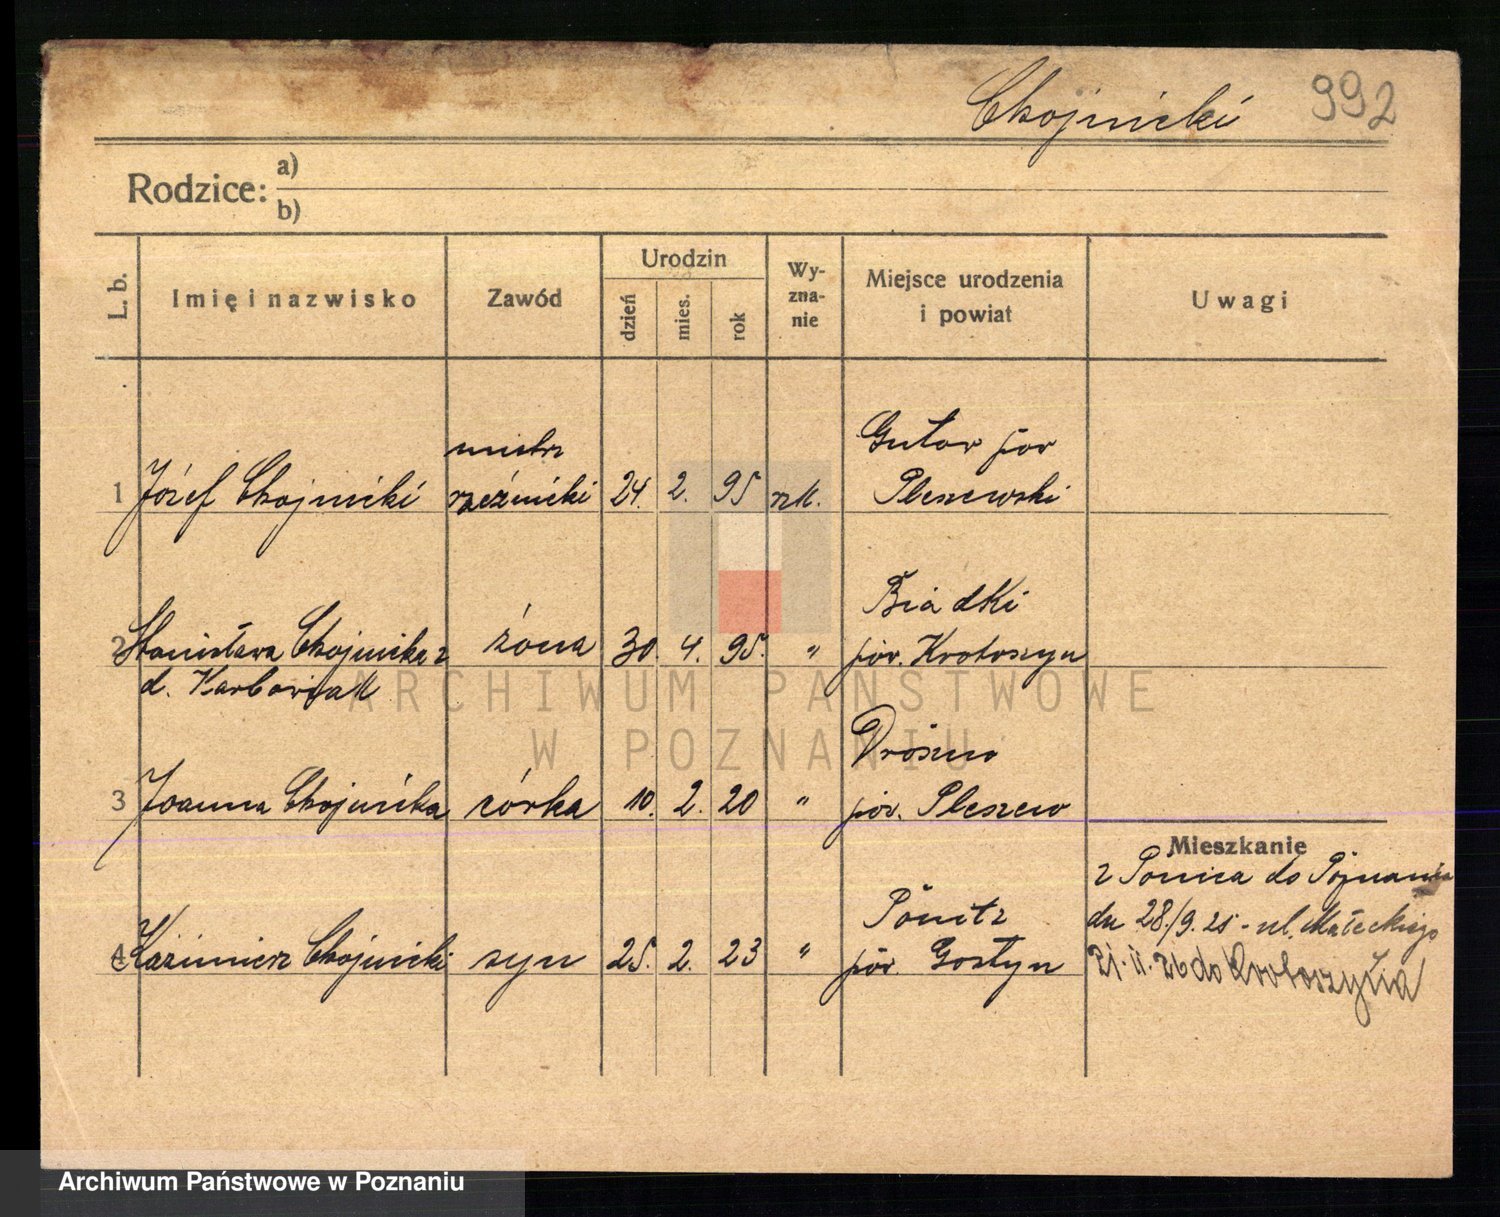 Chojnicki 992
Rodzice: a)
b)
L. b. Imię i nazwisko Zawód Urodzin dzień mies. rok Wy-zna-nie Miejsce urodzenia i powiat Uwagi
1 Józef Chojnicki mistrz rzeźnicki 24. 2. 95 rzk. Gutow pow Pleszewski
2 Stanisława Chojnicka z d. Karbowiak żona 30. 4. 95. " Biadki pow. Krotoszyn
3 Joanna Chojnicka córka 10. 2. 20 " pow. Pleszew
4 Kazimierz Chojnicki syn 25. 2. 23 " Ponitz pow. Gostyn
Mieszkanie
z Ponica do Poznania
dn 28./9. 25 - ul. Małeckiego
21. II. 26 do Krotoszyna
ARCHIWUM PAŃSTWOWE
W POZNANIU
Archiwum Państwowe w Poznaniu